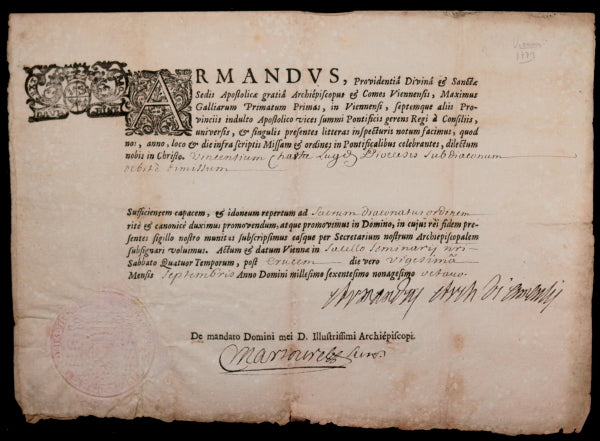 ARMANDVS, Providentiâ Divinâ & Sanctæ
Sedis Apostolicæ gratiâ Archiepiscopus & Comes Viennensis, Maximus
Galliarum Primatum Primas, in Viennensi, septemque aliis Pro-
vinciis indulto Apostolico vices summi Pontificis gerens Regi à Consiliis,
universis, & singulis presentes litteras inspecturis notum facimus, quod
nos, anno, loco & die infra scriptis Missam & ordines in Pontificalibus celebrantes, dilectum
nobis in Christo. Vincentium Lugd Diocesis Subdiaconum
debitè dimissum
Sufficientem capacem, & idoneum repertum ad Sacrum diaconatus ordinem
ritè & canonicè duximus promovendum, atque promovimus in Domino, in cujus rei fidem pre-
sentes sigillo nostro munitas subscripsimus easque per Secretarium nostrum Archiepiscopalem
subsignari voluimus. Actum & datum Viennæ in Sacello Seminarij nri
Sabbato Quatuor Temporum, post Crucem die vero vigesimâ
Mensis Septembris Anno Domini millesimo sexentesimo nonagesimo octavo.
Armandus Arch
De mandato Domini mei D. Illustrissimi Archiepiscopi.
1773